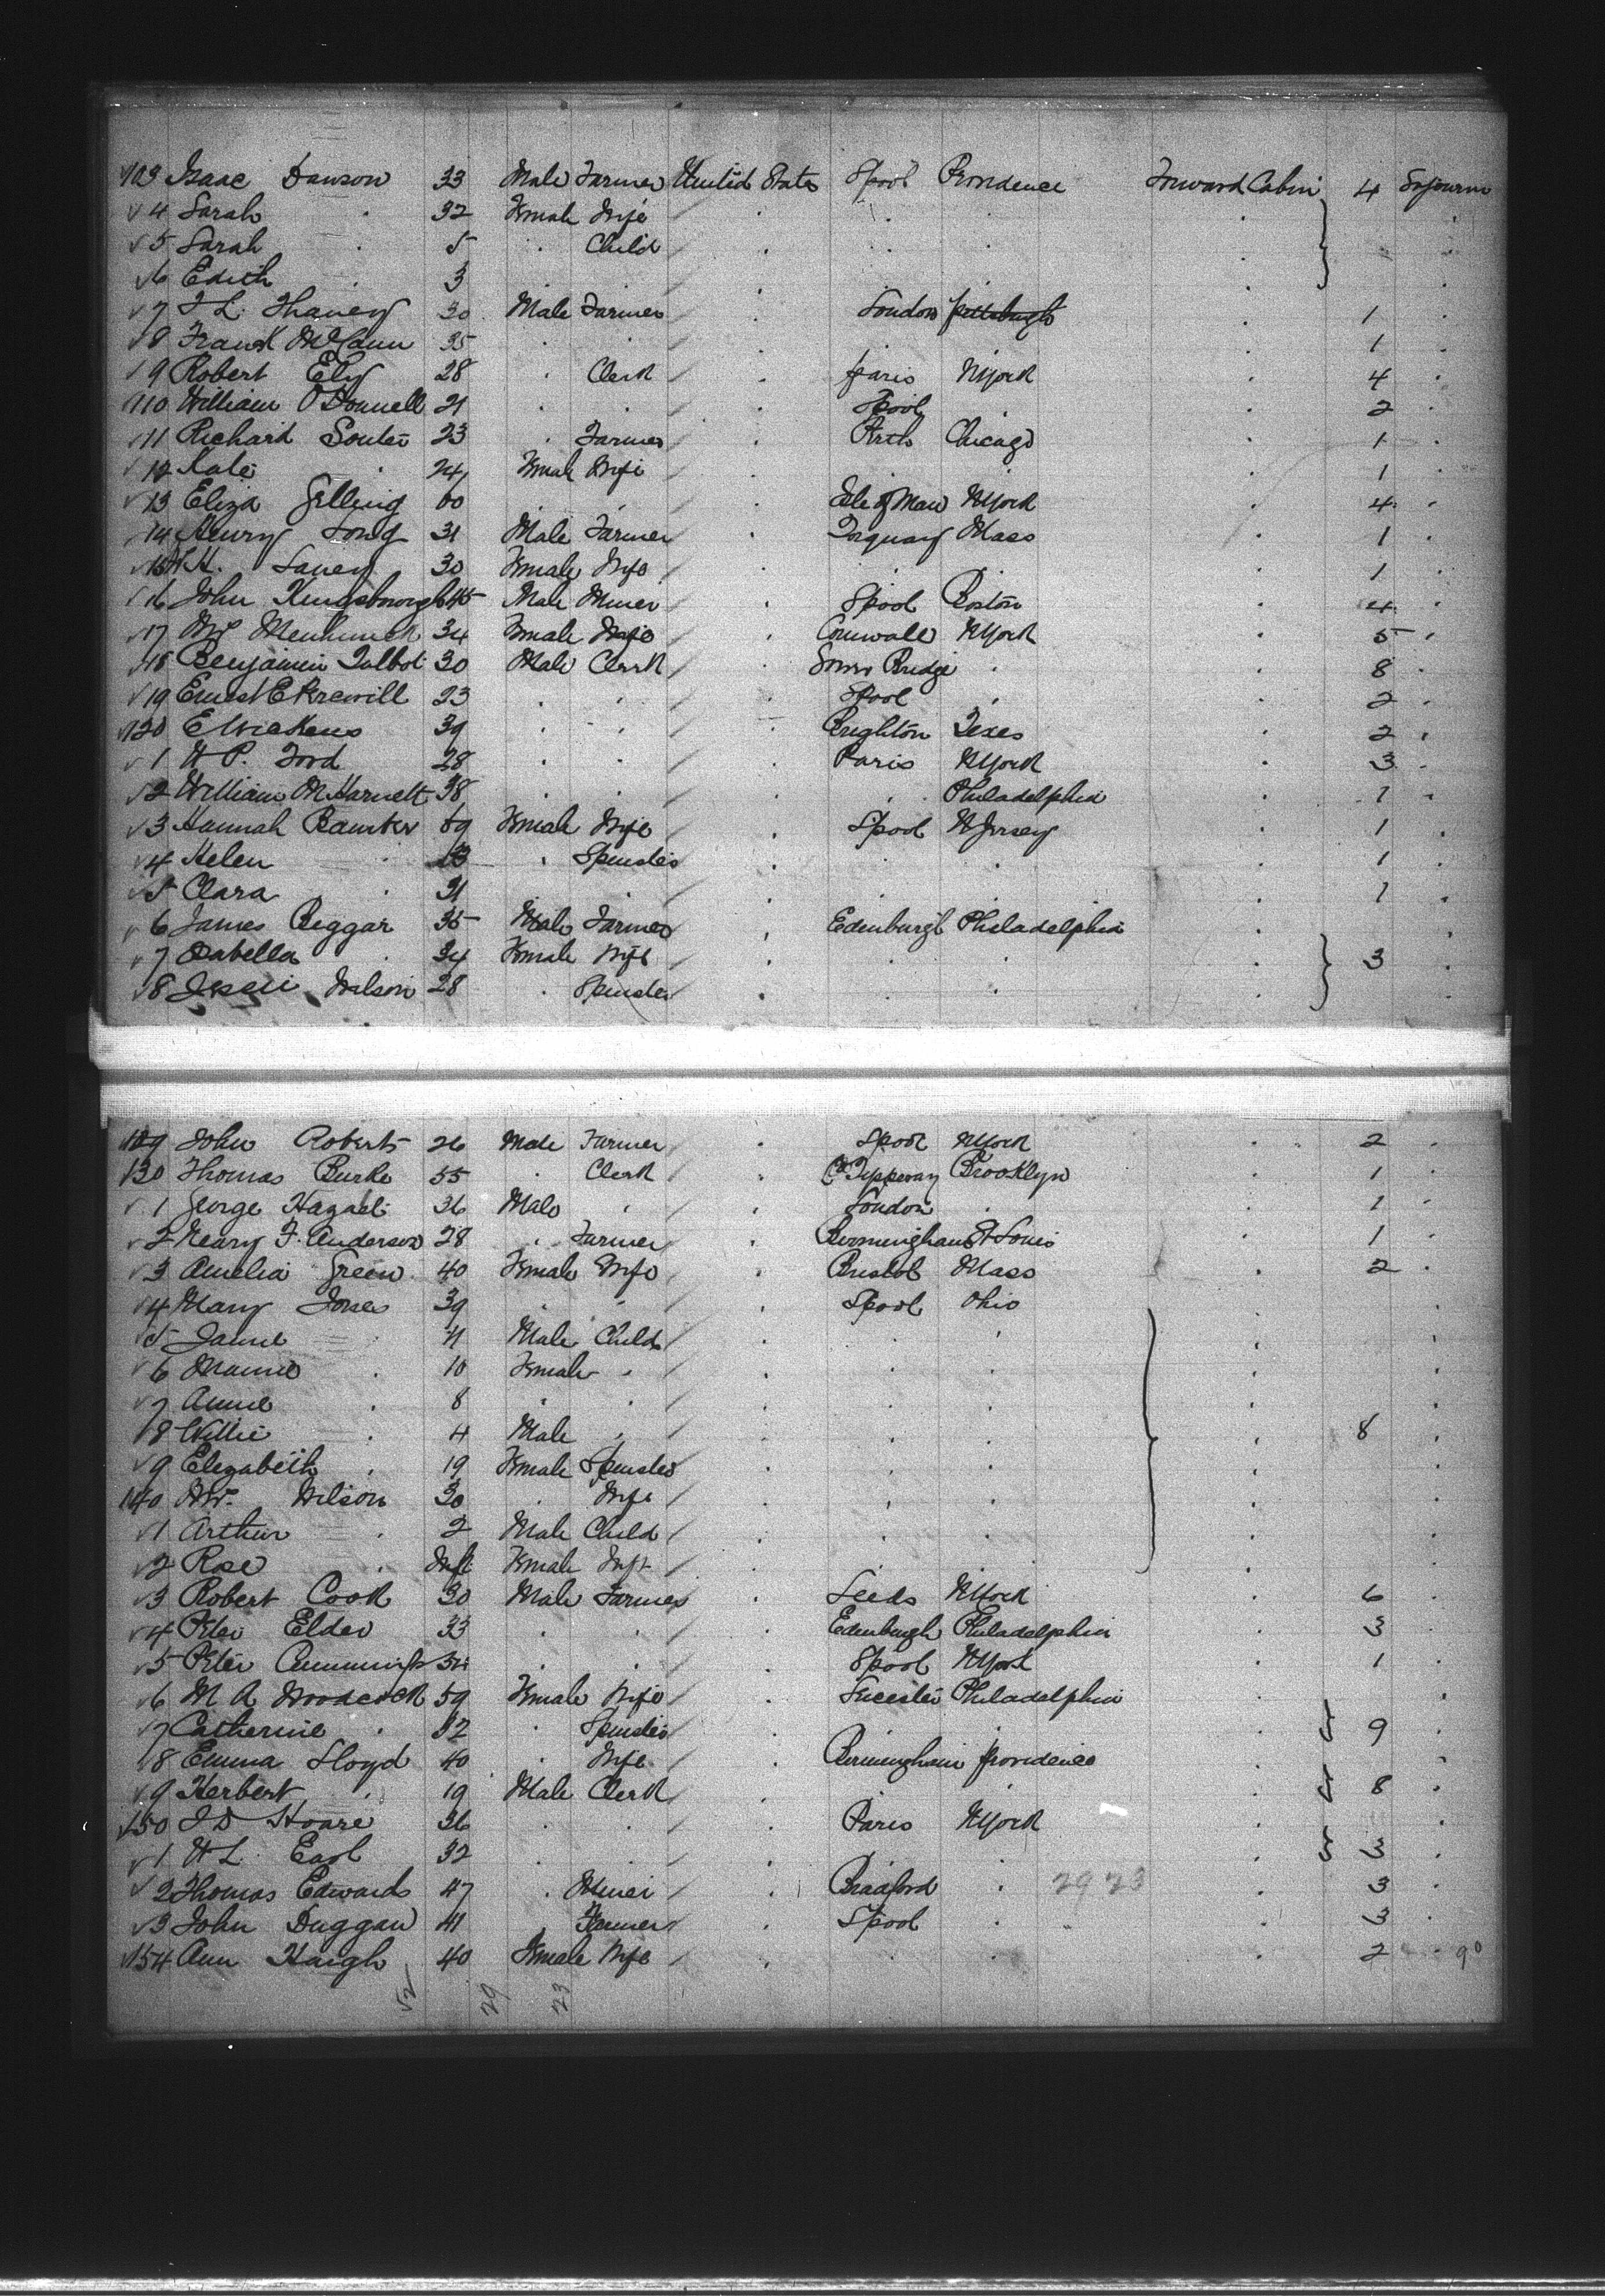 103 Isaac Dawson 33 Male Farmer United States Lpool Providence Forward Cabin 4 Sojourn
4 Sarah 32 Female Wife
5 Sarah 5 Child
6 Edith 3
7 30 Male Farmer London Pittsburgh 1
8 Frank McCann 35 1
9 Robert Ely 28 Clerk Paris NYork 4
110 William O'Donnell 21 Lpool 2
11 Richard 23 Farmer Perth Chicago 1
12 Kate 24 Female Wife 1
13 Eliza Gelling 60 Isle of Man NYork 4
14 Henry Long 31 Male Farmer Torquay Mass 1
15 30 Female Wife 1
16 John Kingsborough 45 Male Miner Lpool Boston 4
17 34 Female Wife Cornwall NYork 5
18 Benjamin Talbot 30 Male Clerk Bridge 8
19 Ernest E 23 Lpool 2
120 E 39 Brighton Texas 2
1 W P. Ford 28 Paris NYork 3
2 William M Harnett 38 Philadelphia 1
3 Hannah 59 Female Wife Lpool NJersey 1
4 Helen 23 Spinster 1
5 Clara 21 1
6 James Beggar 35 Male Farmer Edenburgh Philadelphia
7 Isabella 34 Female Wife 3
8 Jessie Wilson 28 Spinster
129 John Roberts 26 Male Farmer Lpool NYork 2
130 Thomas Burke 55 Clerk Brooklyn 1
1 George 36 Male London 1
2 Henry F. Anderson 28 Farmer Birmingham St Louis 1
3 Amelia Green 40 Female Wife Bristol Mass 2
4 Mary Jones 39 Lpool Ohio
5 11 Male Child
6 Mamie 10 Female
7 Annie 8
8 Willie 4 Male 8
9 Elizabeth 19 Female Spinster
140 Wilson 30 Wife
1 Arthur 2 Male Child
2 Rose Inft Female Inft
3 Robert Cook 30 Male Farmer Leeds NYork 6
4 Peter Elder 33 Edenburgh Philadelphia 3
5 Peter Cummings 34 Lpool NYork 1
6 M A Woodcock 59 Female Wife Leicester Philadelphia
7 Catherine 32 Spinster 9
8 Emma Lloyd 40 Wife Birmingham Providence
9 Herbert 19 Male Clerk 8
150 J D Hoare 36 Paris NYork
1 W L. Earl 32 3
2 Thomas Edwards 47 Miner Bradford 29 23 3
3 John Duggan 41 Farmer Lpool 3
154 Ann Haigh 40 Female Wife 2 90
52 29 23